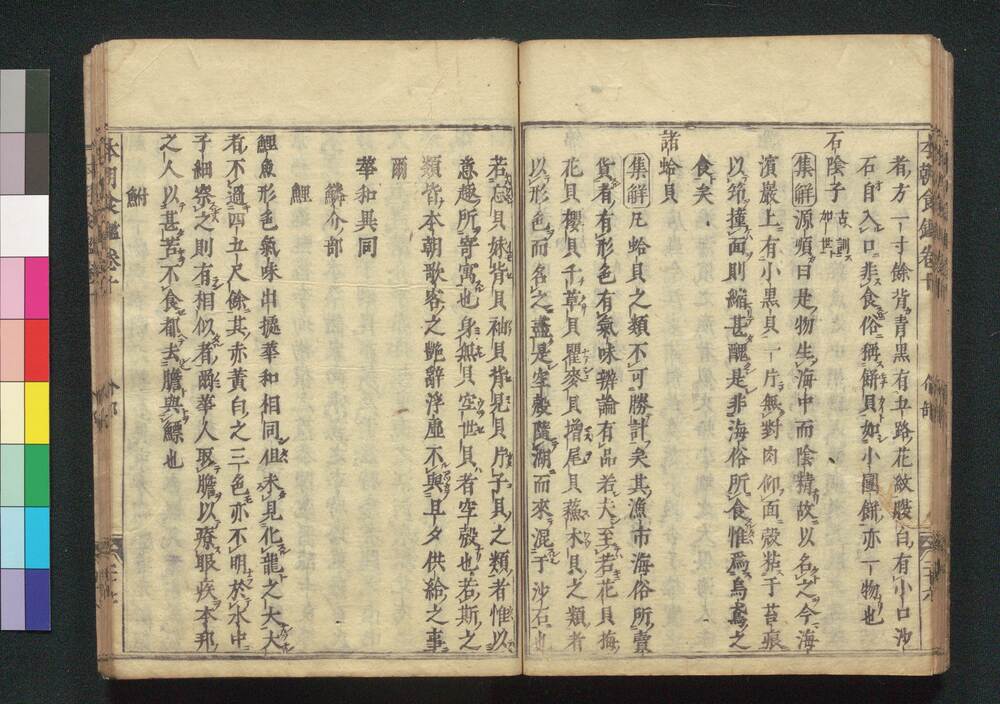 本朝食鑑卷十 介部 二十六
者方一寸餘背青黑有五路花紋腹白有小口沙
石自入口非食俗稱餅貝如小團餅亦一物也
石陰子 古訓加世
集解源順曰是物生海中而陰精故以名之今海
濱巖上有小黑貝一片無對肉仰面殼粘于苔張
以筯撞面則縮甚醜是非海俗所食惟爲烏鳶之
食矣
諸蛤貝
集解凡蛤貝之類不可勝計矣其漁市海俗所賣
貨者有形色有氣味辨論有品若夫至若花貝梅
花貝櫻貝千草貝瞿麥貝增尾貝蘓木貝之類者
以形色而名之盡是空殼隨湖而來混于沙石也
若忘貝妹背貝袖貝背見貝片子貝之類者惟以
意趣所寄寓也身無貝空世貝者空殼也若斯之
類皆本朝歌客之艷辭浮虛不與旦夕供給之事
爾
華和異同
鱗介部
鯉
鯉魚形色氣味出據華和相同但未見化龍之大大
者不過四五尺餘其赤黃白之三色亦不明於水中
子細察之則有相似者爾華人取膽以療眼疾本邦
之人以甚苦不食都去膽與鰾也
鮒
本朝食鑑卷十